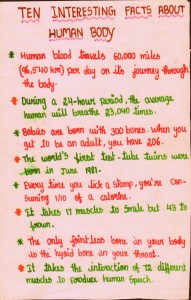 TEN INTERESTING FACTS ABOUT
HUMAN BODY
* Human blood travels 60,000 miles
(96,540 km) per day on its journey through
the body.
* During a 24-hour period, the average
human will breathe 23,040 times.
* Babies are born with 300 bones. When you
get to be an adult, you have 206.
* The world's first test-tube twins were
born in June 1981.
* Every time you lick a stamp, you're con-
suming 1/10 of a calorie.
* It takes 17 muscles to smile but 43 to
frown.
* The only jointless bone in your body
is the hyoid bone in your throat.
* It takes the interaction of 72 different
muscles to produce human speech.